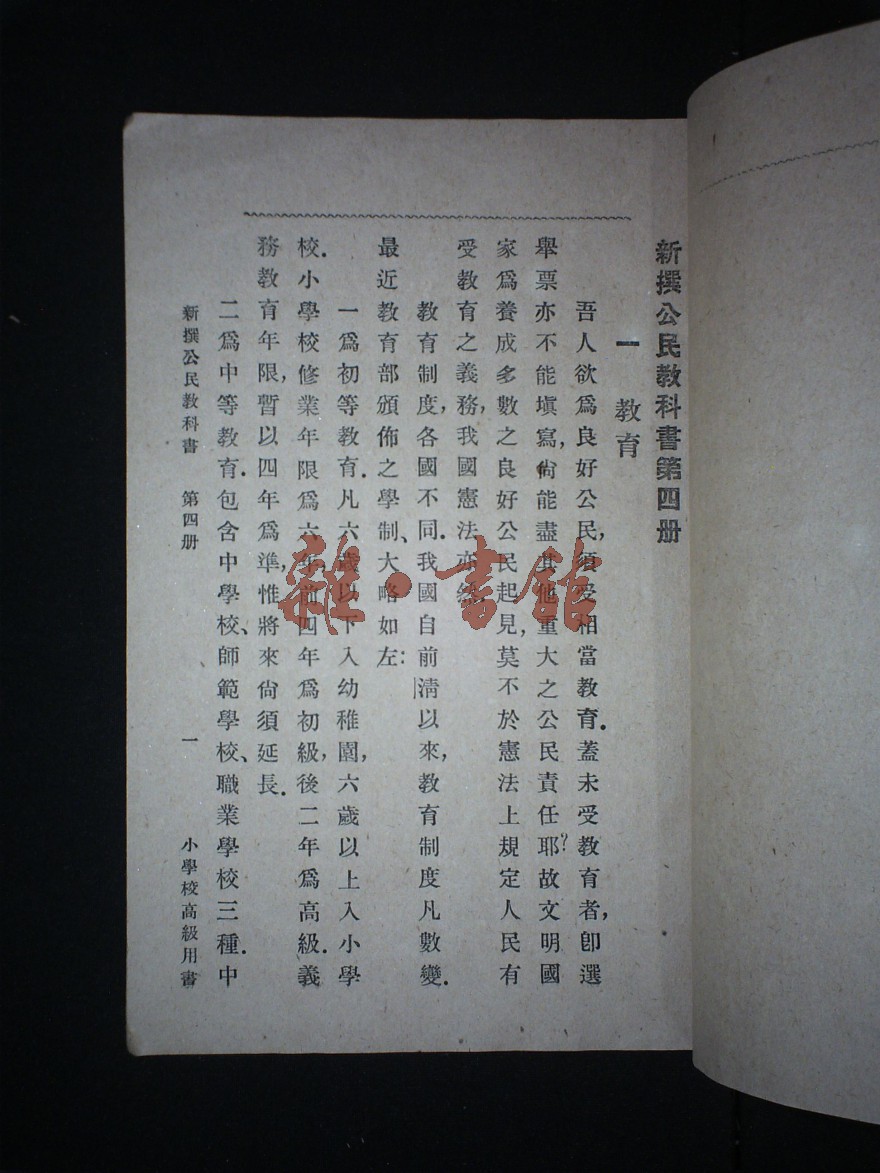 新撰公民教科書第四册
一　教育
吾人欲爲良好公民，須受相當教育．蓋未受教育者，卽選
舉票亦不能塡寫，尙能盡其他重大之公民責任耶？故文明國
家爲養成多數之良好公民起見，莫不於憲法上規定人民有
受教育之義務，我國憲法亦然
教育制度，各國不同．我國自前淸以來，教育制度凡數變．
最近教育部頒佈之學制、大略如左：
一爲初等教育．凡六歲以下入幼稚園，六歲以上入小學
校．小學校修業年限爲六年，前四年爲初級，後二年爲高級．義
務教育年限，暫以四年爲準，惟將來尙須延長．
二爲中等教育．包含中學校、師範學校、職業學校三種．中
新撰公民教科書　第四册　一　小學校高級用書
雜·書館